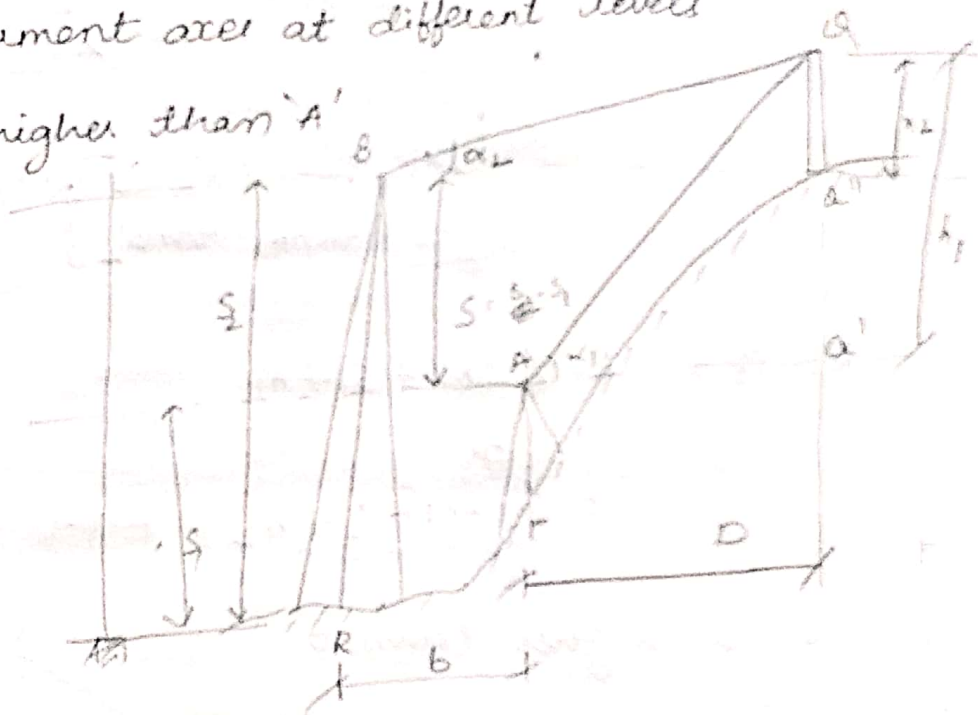 ument axes at different levels
higher than 'A'
Q
B
α₂
h₂
Q''
h₁
S₂
S = S₂ - S₁
A
α₁
Q'
S₁
P
D
R
b